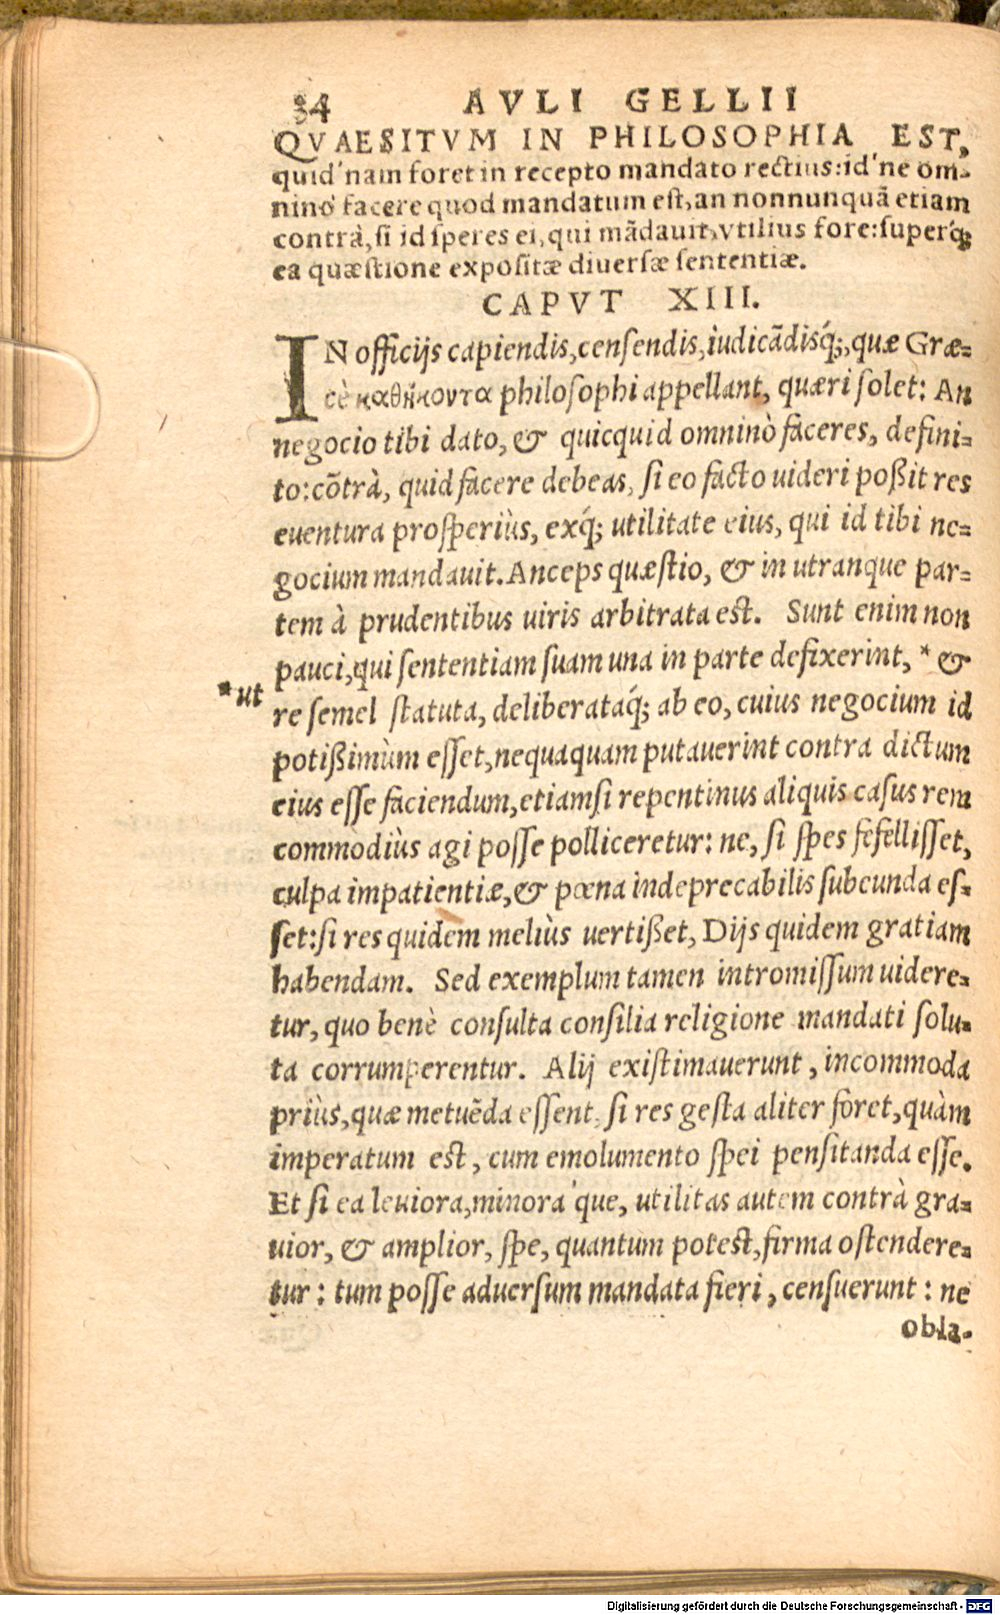 34 AVLI GELLII
QVAESITVM IN PHILOSOPHIA EST,
quid'nam foret in recepto mandato rectius: id'ne om-
nino facere quod mandatum est, an nonnunquã etiam
contrà, si id speres ei, qui mãdauit, vtilius fore: superq́;
ea quæstione expositæ diuersæ sententiæ.
CAPVT XIII.
IN officijs capiendis, censendis, iudicãdisq́;, quæ Græ-
cè καθήκοντα philosophi appellant, quæri solet: An
negocio tibi dato, & quicquid omninò faceres, defini-
to: cõtrà, quid facere debeas, si eo facto uideri poßit res
euentura prosperiùs, exq́; utilitate eius, qui id tibi ne-
gocium mandauit. Anceps quæstio, & in utranque par-
tem à prudentibus uiris arbitrata est. Sunt enim non
pauci, qui sententiam suam una in parte defixerint, * &
*ut
re semel statuta, deliberataq́; ab eo, cuius negocium id
potißimùm esset, nequaquam putauerint contra dictum
eius esse faciendum, etiamsi repentinus aliquis casus rem
commòdiùs agi posse polliceretur: ne, si spes fefellisset,
culpa impatientiæ, & pœna indeprecabilis subeunda es-
set: si res quidem meliùs uertißet, Dijs quidem gratiam
habendam. Sed exemplum tamen intromissum uidere-
tur, quo benè consulta consilia religione mandati solu-
ta corrumperentur. Alij existimauerunt, incommoda
priùs, quæ metuẽda essent, si res gesta aliter foret, quàm
imperatum est, cum emolumento spei pensitanda esse.
Et si ea leuiora, minora'que, utilitas autem contrà gra-
uior, & amplior, spe, quantum potest, firma ostendere-
tur: tum posse aduersum mandata fieri, censuerunt: ne
obla-
Digitalisierung gefördert durch die Deutsche Forschungsgemeinschaft - DFG